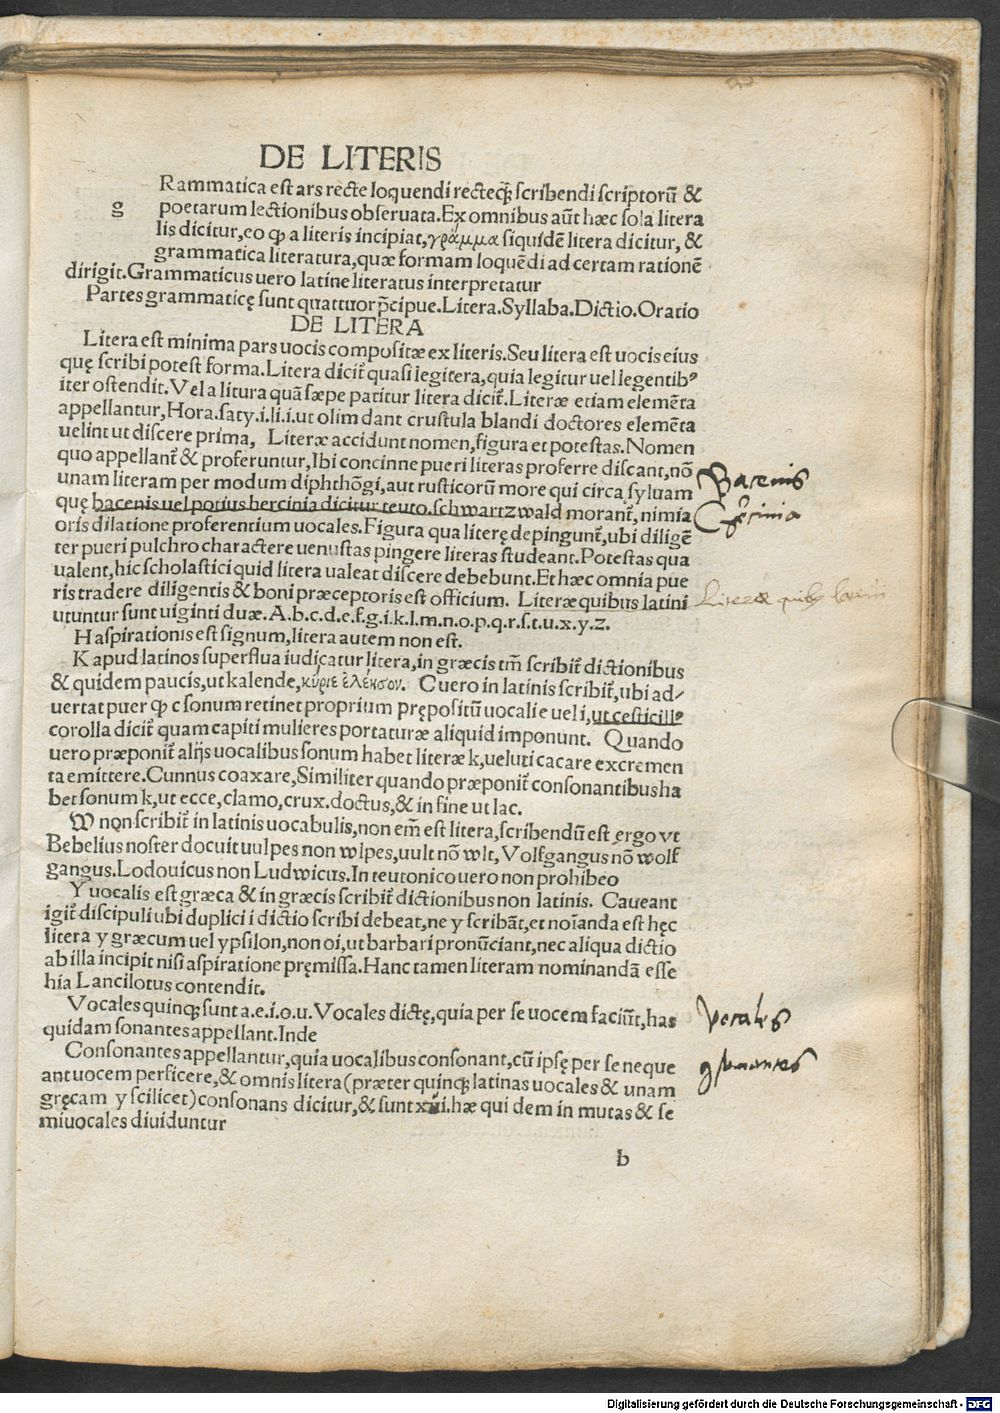 DE LITERIS
g Rammatica est ars recte loquendi recteq̃ scribendi scriptorũ &
poetarum lectionibus obseruata. Ex omnibus aũt hæc sola litera
lis dicitur, eo ꝙ a literis incipiat, γράμμα siquidẽ litera dicitur, &
grammatica literatura, quæ formam loquẽdi ad certam rationẽ
dirigit. Grammaticus uero latine literatus interpretatur
Partes grammaticę sunt quattuor p̃cipue. Litera. Syllaba. Dictio. Oratio
DE LITERA
Litera est minima pars uocis compositæ ex literis. Seu litera est uocis eius
quę scribi potest forma. Litera dicit̃ quasi legitera, quia legitur uel legentibꝰ
iter ostendit. Vel a litura quã sæpe patitur litera dicit̃. Literæ etiam elemẽta
appellantur, Hora. saty. i. li. i. ut olim dant crustula blandi doctores elemẽta
uelint ut discere prima, Literæ accidunt nomen, figura et potestas. Nomen
quo appellant̃ & proferuntur, Ibi concinne pueri literas proferre discant, nõ
unam literam per modum diphthõgi, aut rusticorũ more qui circa syluam
quę bacenis uel potius hercinia dicitur teuto. schwartzwald morant̃, nimia
oris dilatione proferentium uocales. Figura qua literę depingunt̃, ubi diligẽ
ter pueri pulchro charactere uenustas pingere literas studeant. Potestas qua
ualent, hic scholastici quid litera ualeat discere debebunt. Et hæc omnia pue
ris tradere diligentis & boni præceptoris est officium. Literæ quibus latini
utuntur sunt uiginti duæ. A.b.c.d.e.f.g.i.k.l.m.n.o.p.q.r.s.t.u.x.y.z.
H aspirationis est signum, litera autem non est.
K apud latinos superflua iudicatur litera, in græcis tm̃ scribit̃ dictionibus
& quidem paucis, ut kalende, κύριε ἐλέησον. C uero in latinis scribit̃, ubi ad⸗
uertat puer ꝙ c sonum retinet proprium prępositũ uocali e uel i, ut cesticillꝰ
corolla dicit̃ quam capiti mulieres portaturæ aliquid imponunt. Quando
uero præponit̃ alijs uocalibus sonum habet literæ k, ueluti cacare excremen
ta emittere. Cunnus coaxare, Similiter quando præponit̃ consonantibus ha
bet sonum k, ut ecce, clamo, crux. doctus, & in fine ut lac.
W non scribit̃ in latinis uocabulis, non em̃ est litera, scribendũ est ergo vt
Bebelius noster docuit uulpes non wlpes, uult nõ wlt, Volfgangus nõ wolf
gangus. Lodouicus non Ludwicus. In teutonico uero non prohibeo
Y uocalis est græca & in græcis scribit̃ dictionibus non latinis. Caueant
igit̃ discipuli ubi duplici i dictio scribi debeat, ne y scribãt, et noĩanda est hęc
litera y græcum uel ypsilon, non oi, ut barbari pronũciant, nec aliqua dictio
ab illa incipit nisi aspiratione pręmissa. Hanc tamen literam nominandã esse
hia Lancilotus contendit.
Vocales quinq̃ sunt a.e.i.o.u. Vocales dictę, quia per se uocem faciũt, has
quidam sonantes appellant. Inde
Consonantes appellantur, quia uocalibus consonant, cũ ipsę per se neque
ant uocem perficere, & omnis litera (præter quinq̃ latinas uocales & unam
gręcam y scilicet) consonans dicitur, & sunt hæ qui dem in mutas & se
miuocales diuiduntur
b
Bacenis
Literæ quibꝰ latini
Vocales
Digitalisierung gefördert durch die Deutsche Forschungsgemeinschaft - DFG